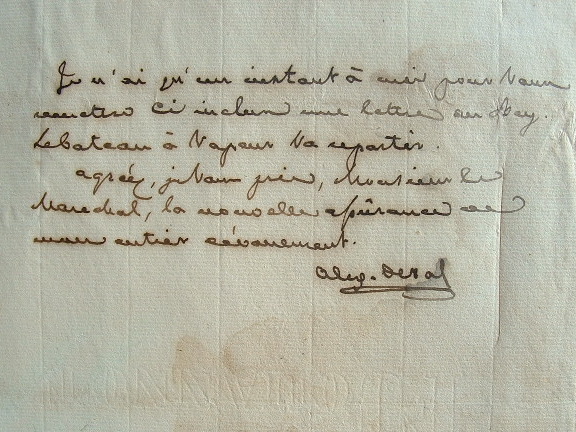 Je n'ai qu'un instant à moi pour vous
remettre ci inclus une lettre du Dey.
Le bateau à vapeur va repartir.
agréez, je vous prie, Monsieur le
Maréchal, la nouvelle assurance de
mon entier dévouement.
Alex. Deval